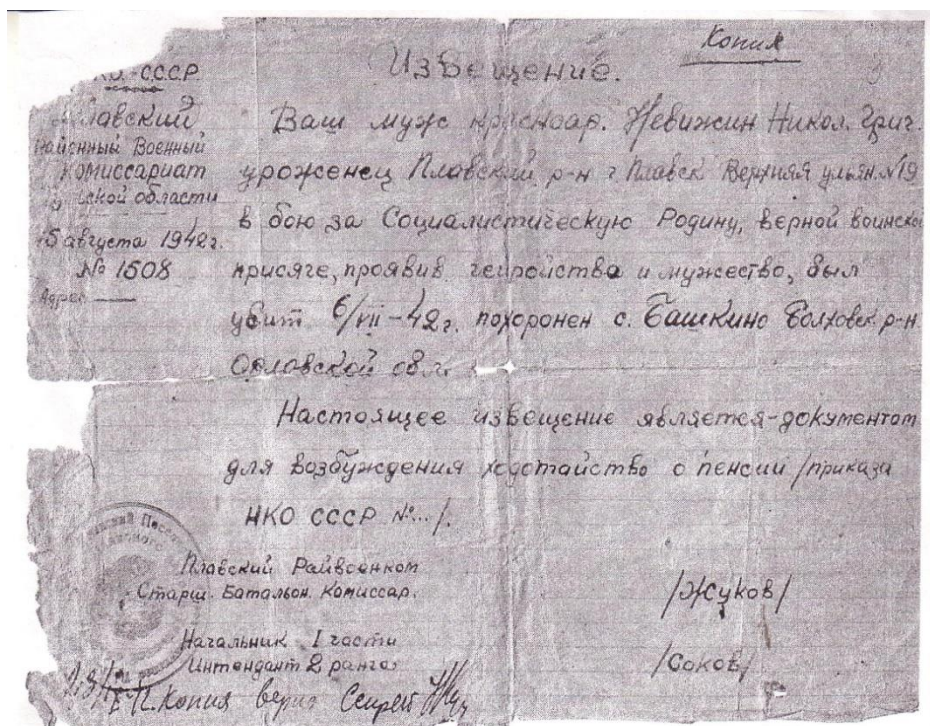 Копия
Извещение.
НКО-СССР
Плавский
Районный Военный
Комиссариат
ской области
15 августа 1942г.
№ 1508
Адрес
Ваш муж красноар. Невижин Никол. Григ.
уроженец Плавский р-н г Плавск Верхняя ульян. №19
в бою за Социалистическую Родину, верной воинской
присяге, проявив геиройства и мужество, был
убит 6/VII-42г. похоронен с. Башкино Болховск р-н
Орловской обл.
Настоящее извещение является-документом
для возбуждения ходотайство о пенсии /приказа
НКО СССР №.../.
Плавский Райвоенком
Старш. Батальон. Комиссар.
/Жуков/
Начальник I части
Интендант 2 ранга
/Соков/
Копия верна